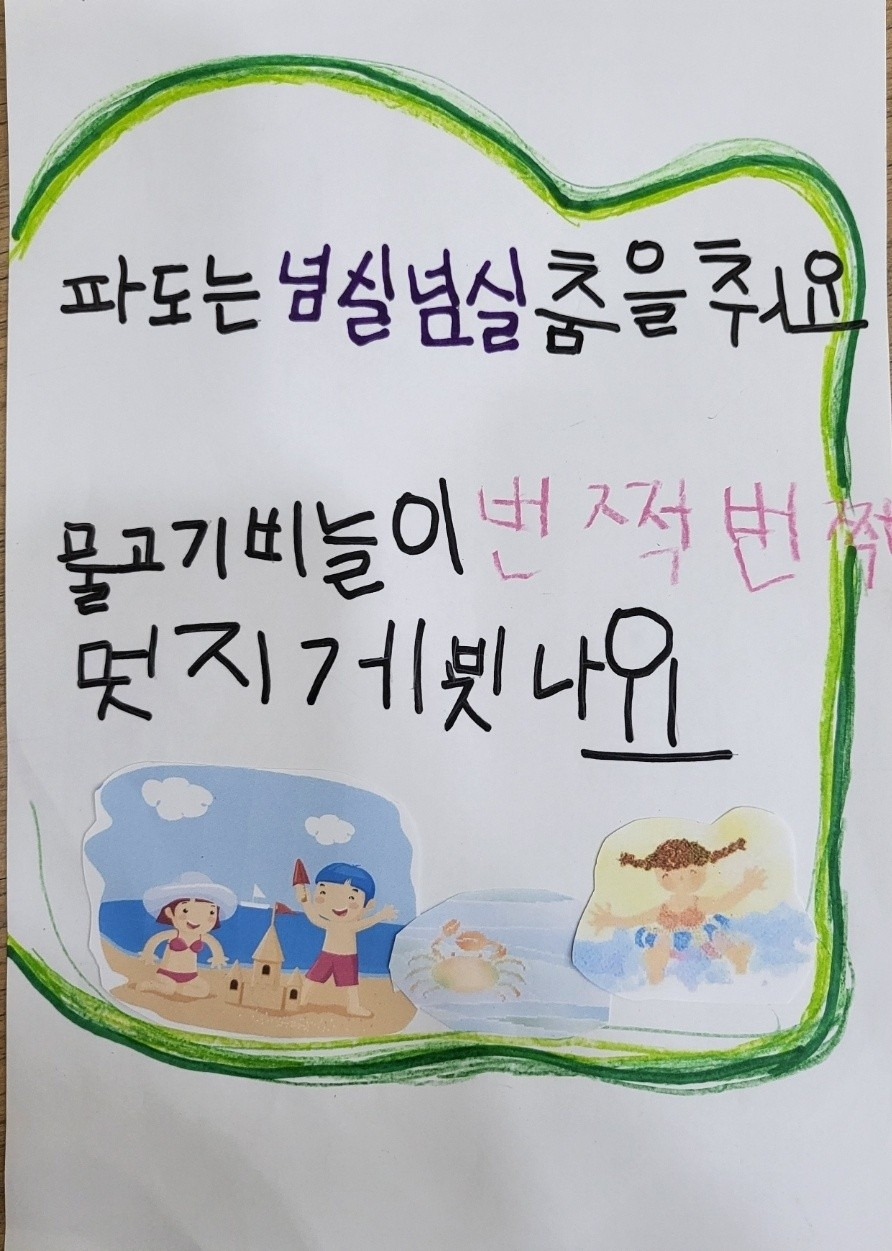 파도는 넘실넘실 춤을 춰요
물고기 비늘이 번쩍번쩍
멋지게 빛나요